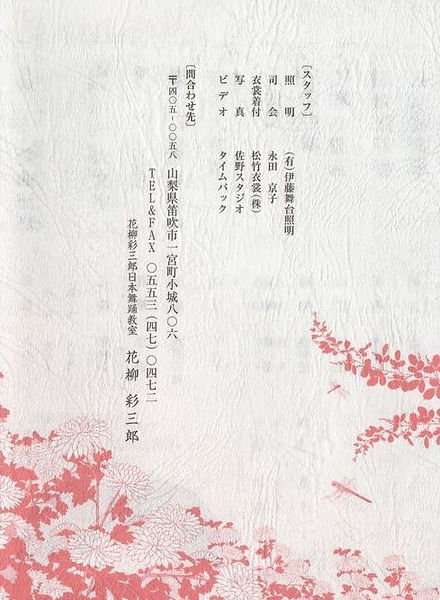 〔スタッフ〕
照明 (有)伊藤舞台照明
司会 永田 京子
衣裳着付 松竹衣裳(株)
写真 佐野スタジオ
ビデオ タイムパック
〔問合わせ先〕
〒四〇五-〇〇五八 山梨県笛吹市一宮町小城八〇六
TEL&FAX 〇五五三(四七)〇四七二
花柳彩三郎日本舞踊教室 花柳 彩三郎